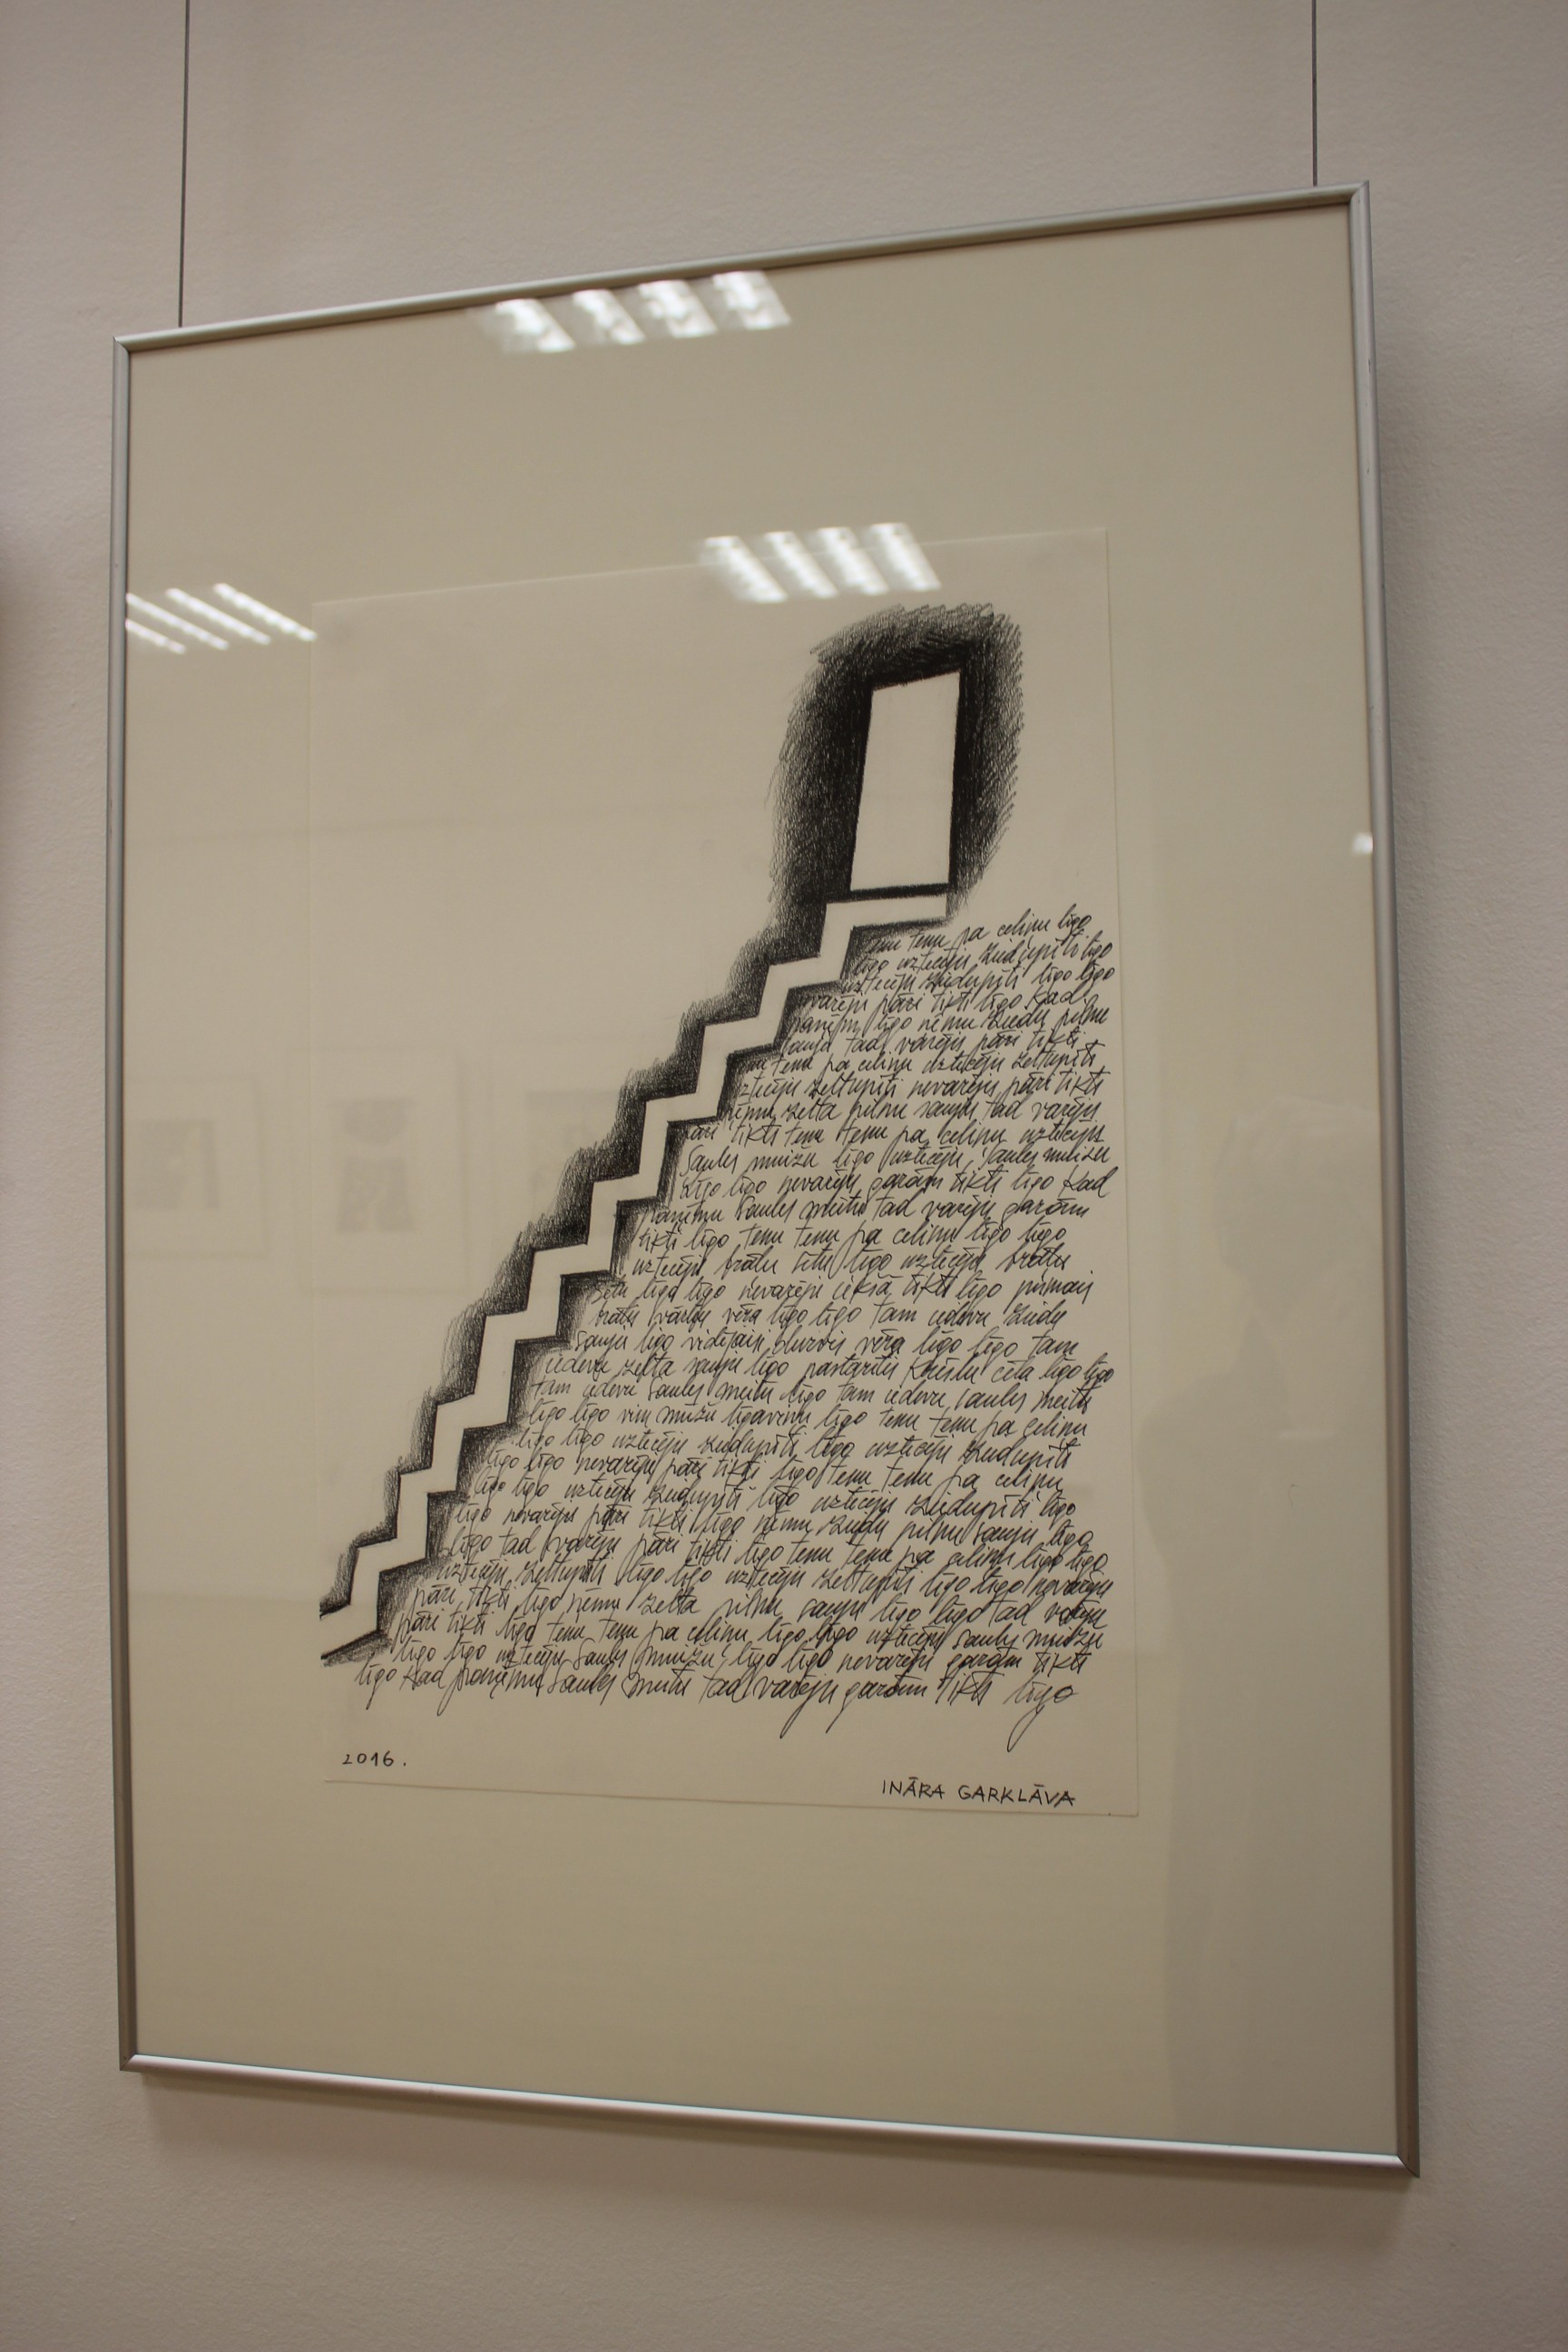 teku teku pa celiņu līgo
līgo uztecēju ziedupīti līgo
uztecēju ziedupīti līgo līgo
nevarēju pāri tikti līgo kad
paņēmu līgo ņēmu ziedu pilnu
sauju tad varēju pāri tikti
teku teku pa celiņu uztecēju zeltupīti
uztecēju zeltupīti nevarēju pāri tikti
ņēmu zelta pilnu sauju tad varēju
pāri tikti teku teku pa celiņu uztecēju
Saules muižu līgo uztecēju Saules muižu
līgo līgo nevarēju garām tikti līgo kad
paņēmu Saules meitu tad varēju garām
tikti līgo teku teku pa celiņu līgo līgo
uztecēju brāļu sētu līgo uztecēju brāļu
sētu līgo līgo nevarēju iekšā tikti līgo pirmais
brālis vārtus vēra līgo līgo tam iedevu ziedu
sauju līgo vidējais durvis vēra līgo līgo tam
iedevu zelta sauju līgo pastarītis krēslu cēla līgo līgo
tam iedevu Saules meitu līgo tam iedevu saules meitu
līgo līgo viņu mūžu līgaviņu līgo teku teku pa celiņu
līgo līgo uztecēju ziedupīti līgo uztecēju ziedupīti
līgo līgo nevarēju pāri tikti līgo teku teku pa celiņu
līgo līgo uztecēju ziedupīti līgo uztecēju ziedupīti līgo
līgo nevarēju pāri tikti līgo ņēmu ziedu pilnu sauju līgo
līgo tad varēju pāri tikti līgo teku teku pa celiņu līgo līgo
uztecēju zeltupīti līgo līgo uztecēju zeltupīti līgo līgo nevarēju
pāri tikti līgo ņēmu zelta pilnu sauju līgo līgo tad varēju
pāri tikti līgo teku teku pa celiņu līgo līgo uztecēju Saules muižu
līgo līgo uztecēju Saules muižu līgo līgo nevarēju garām tikti
līgo kad paņēmu Saules meitu tad varēju garām tikti līgo
2016.
INĀRA GARKLĀVA